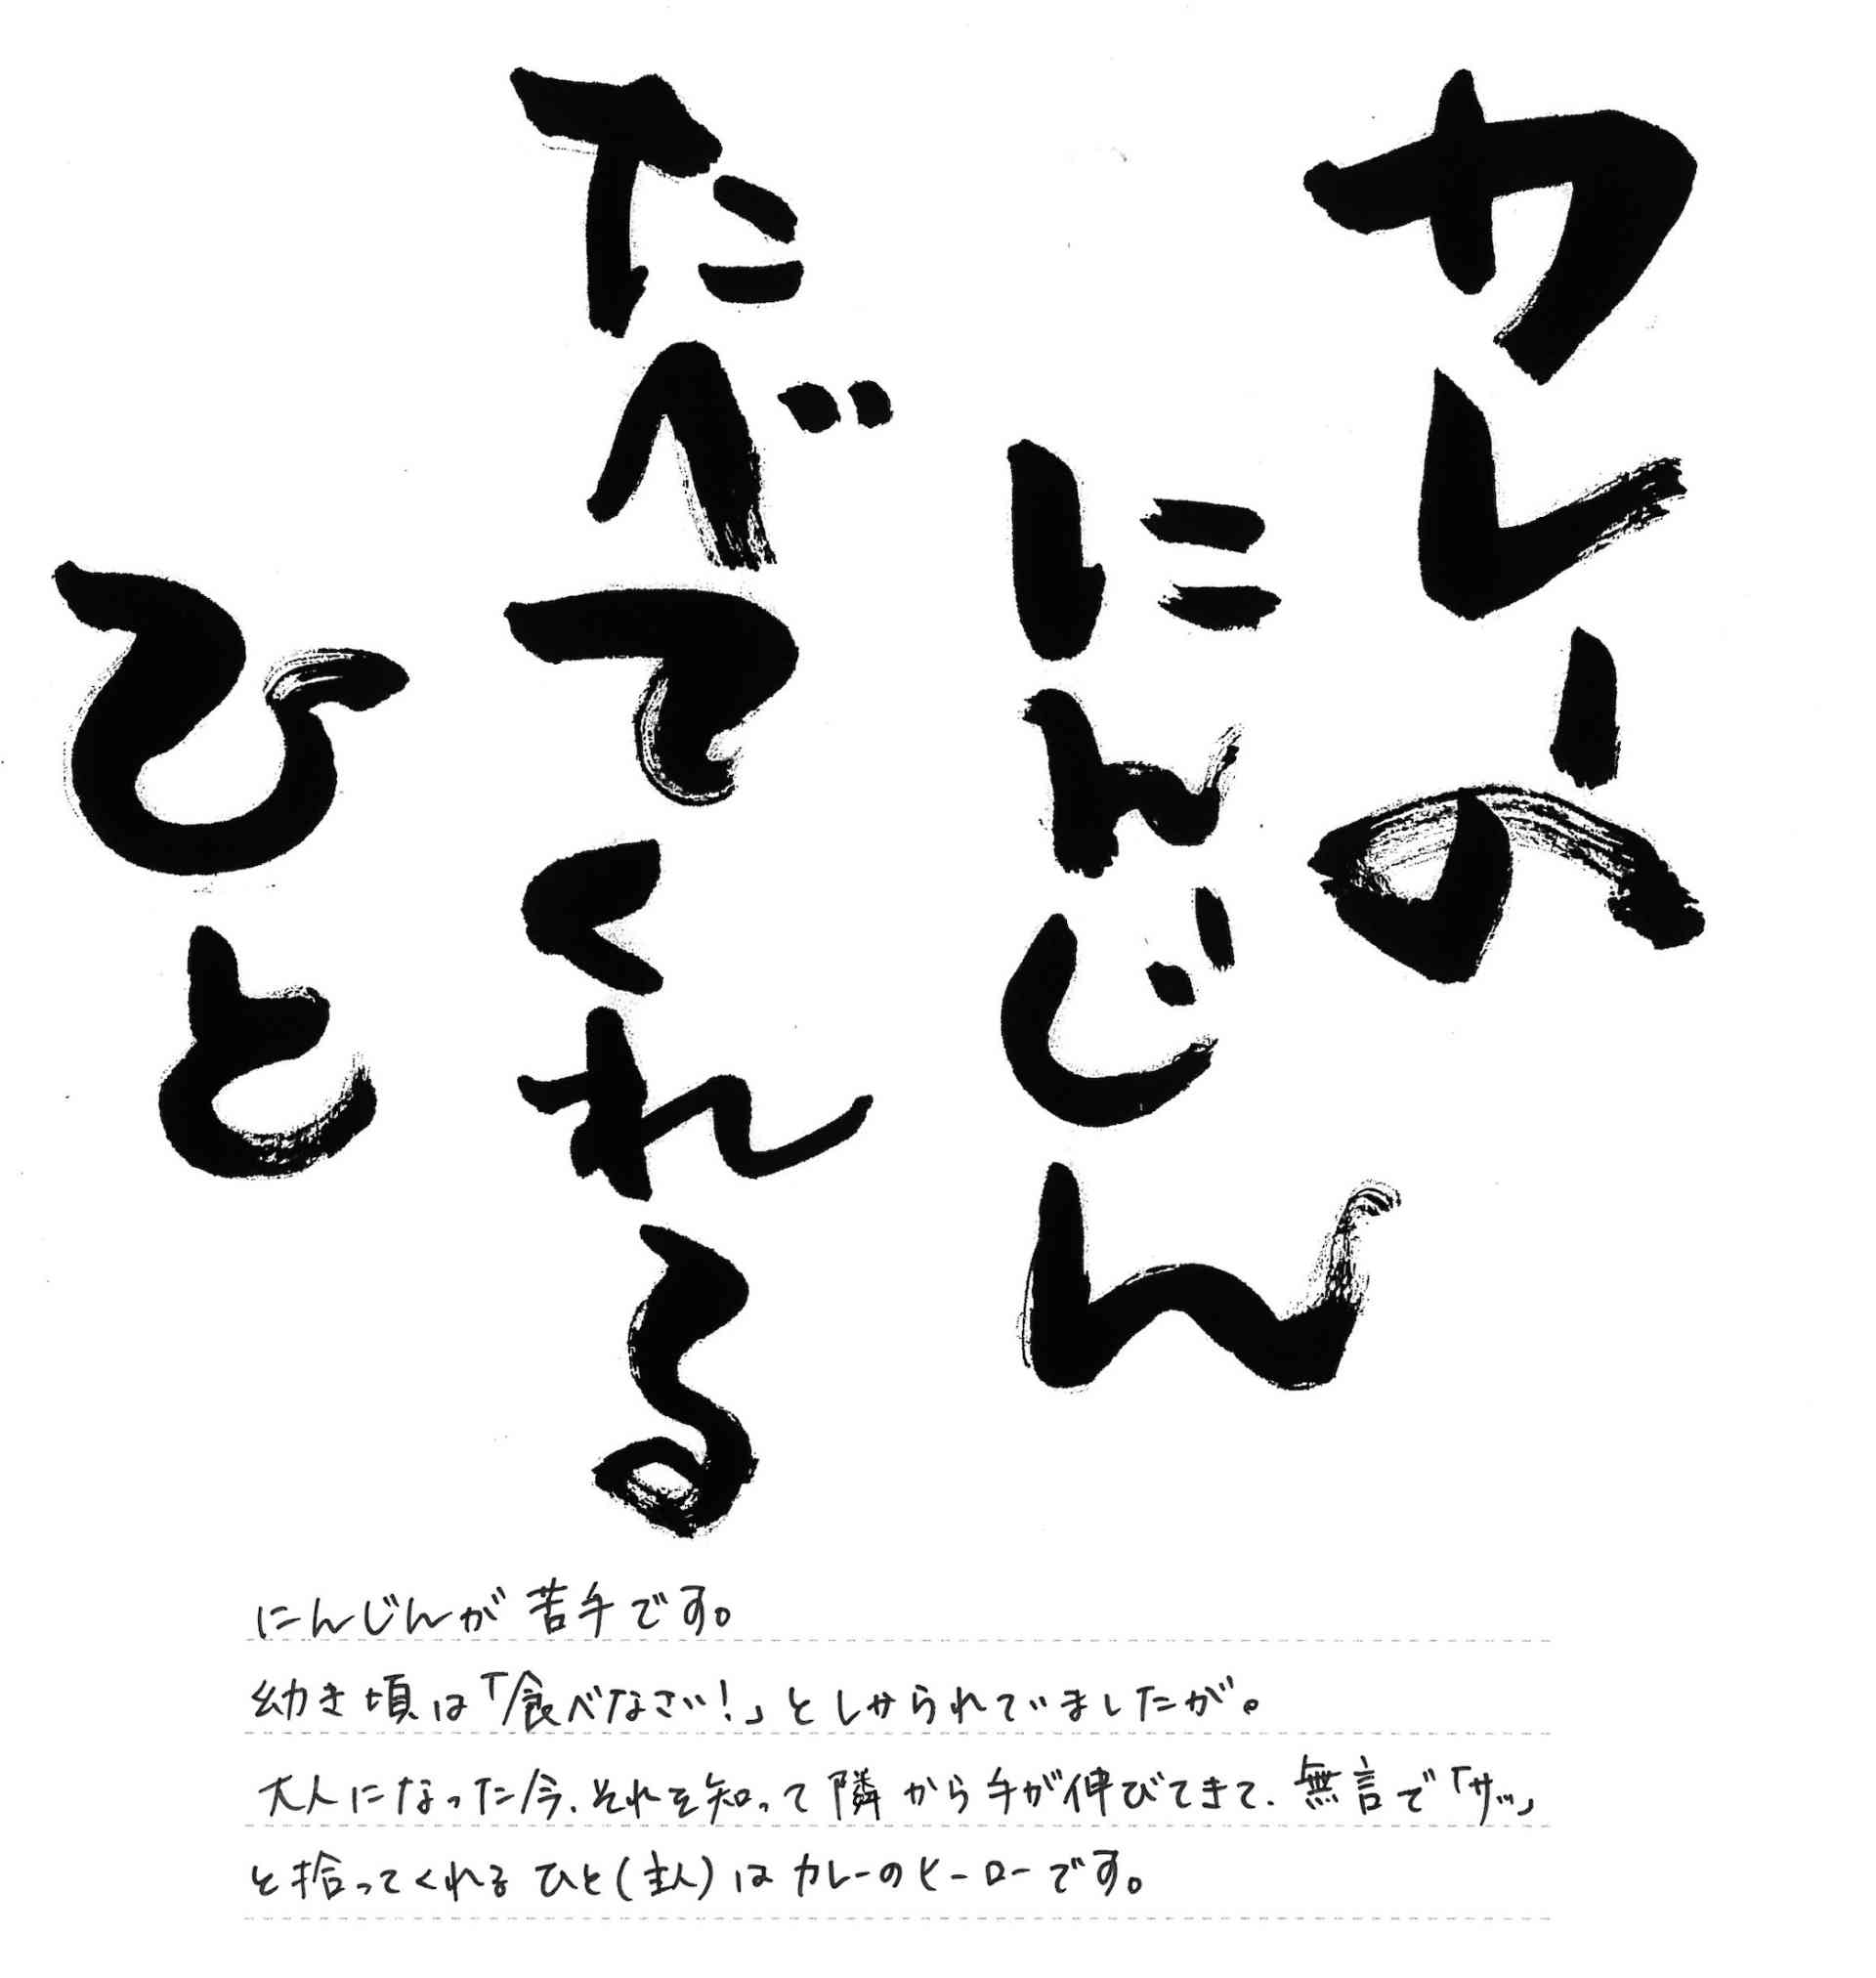 カレーの
にんじん
たべてくれる
ひと
にんじんが苦手です。
幼き頃は「食べなさい!」としかられていましたが。
大人になった今、それを知って隣から手が伸びてきて、無言で「サッ」
と拾ってくれるひと(主人)はカレーのヒーローです。